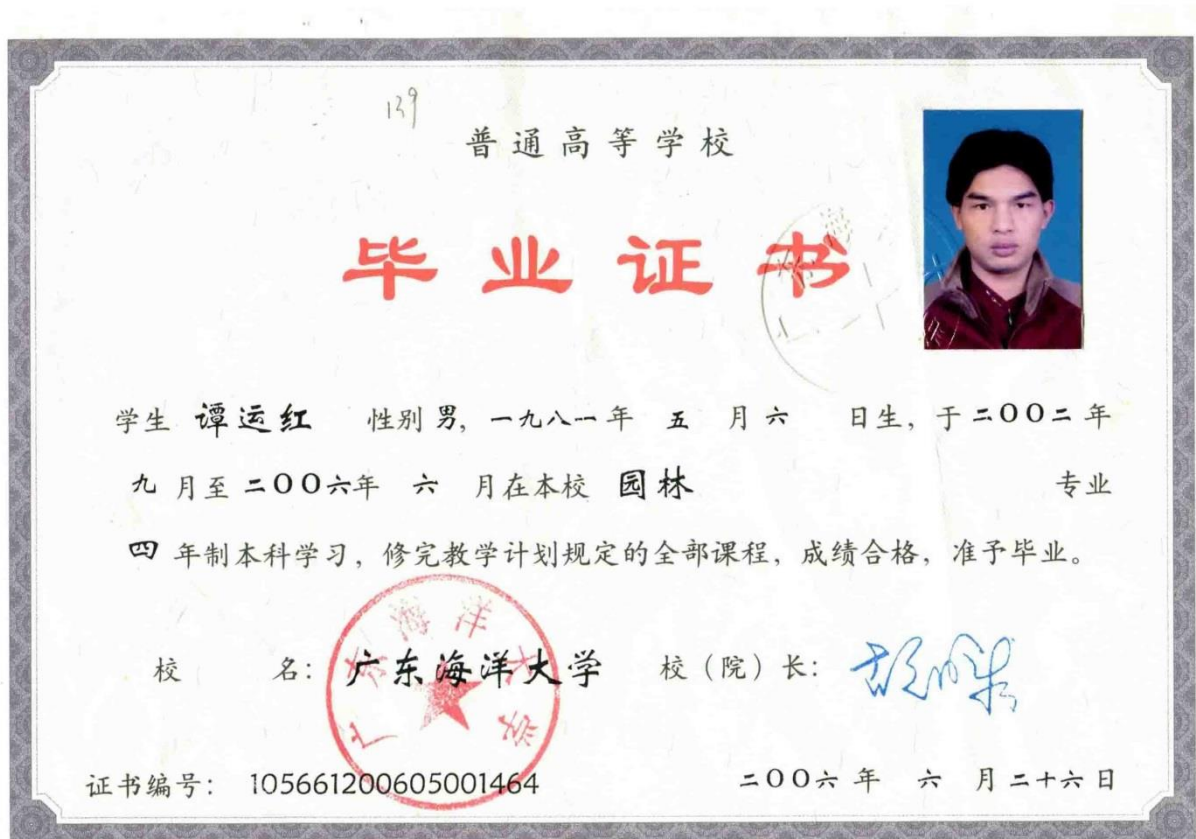 139
普通高等学校
毕业证书
学生 谭运红 性别 男, 一九八一年 五 月 六 日生, 于 二〇〇二 年
九 月至 二〇〇六年 六 月在本校 园林 专业
四 年制本科学习, 修完教学计划规定的全部课程, 成绩合格, 准予毕业。
校 名: 广东海洋大学 校(院)长:
广东海洋大学
证书编号: 105661200605001464 二〇〇六 年 六 月 二十六 日